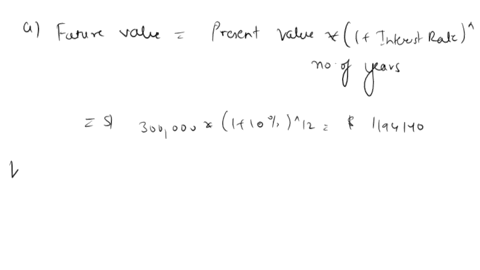 a) Future value = Present value * (1 + Interest Rate)^
no of years
= $ 300,000 * (1+10%)^12 = $ 1194140